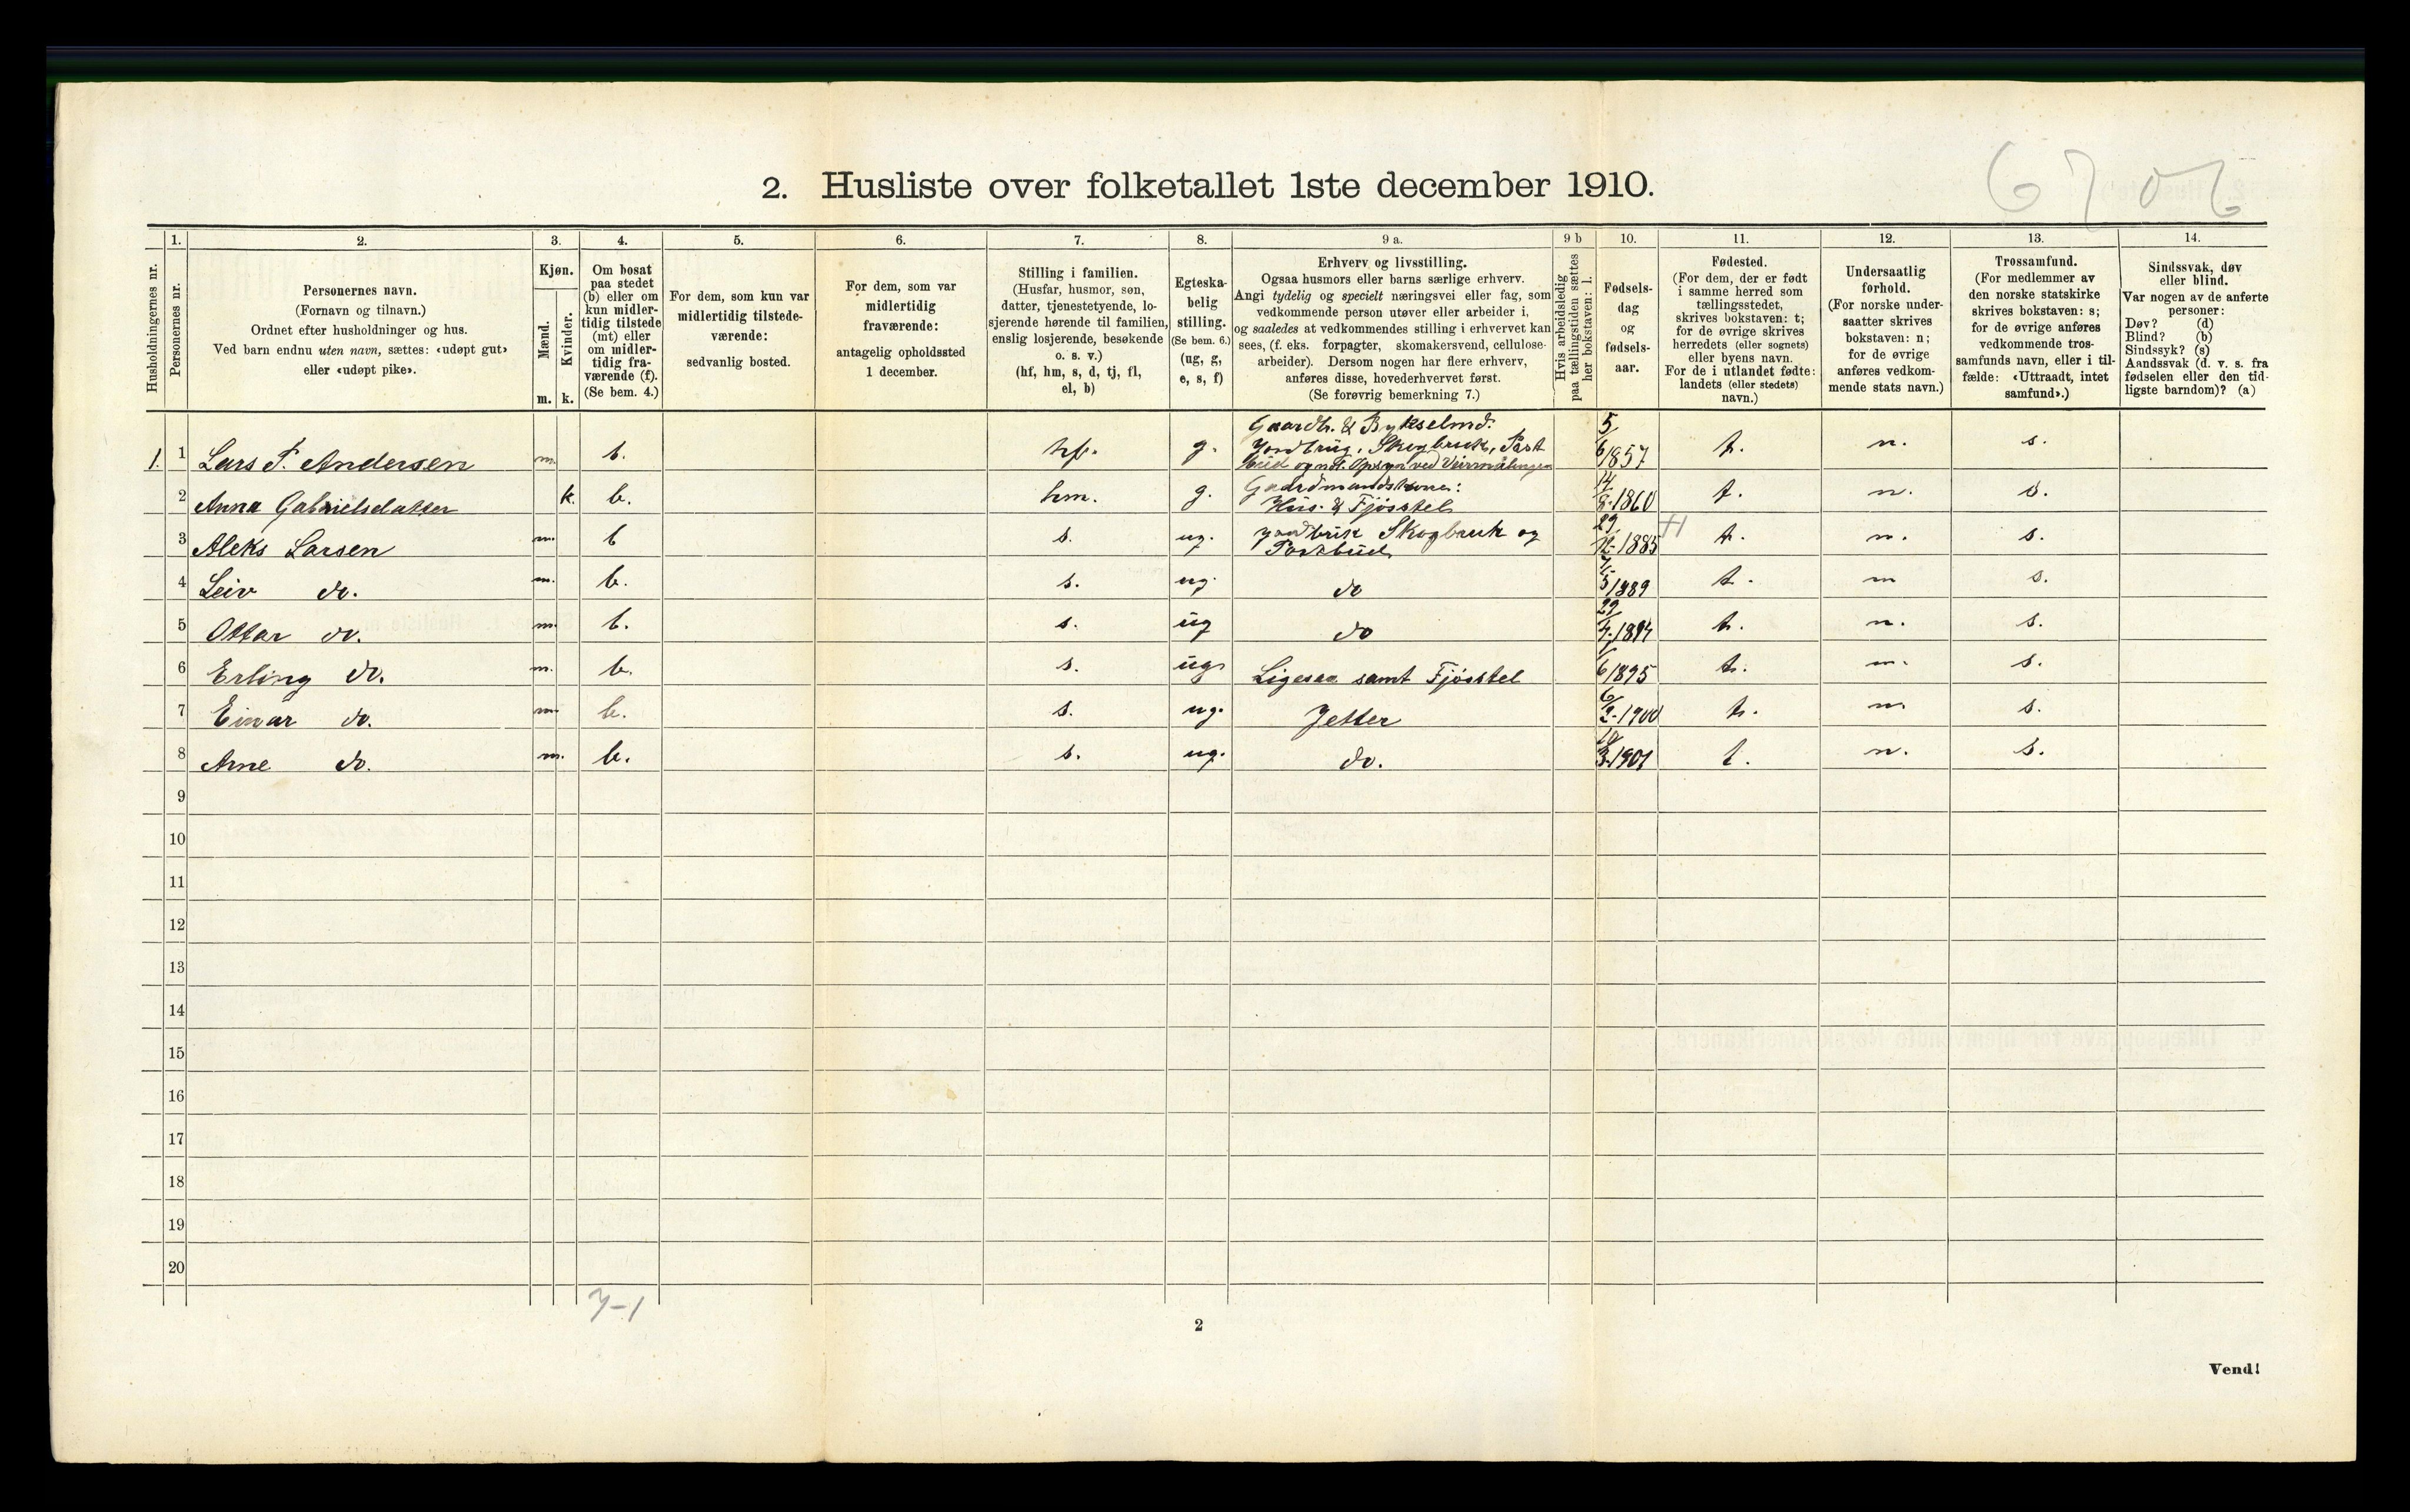 2. Husliste over folketallet 1ste december 1910.
Husholdningernes nr.
1.
Personernes nr.
2.
Personernes navn.
(Fornavn og tilnavn.)
Ordnet efter husholdninger og hus.
Ved barn endnu uten navn, sættes: «udøpt gut»
eller «udøpt pike».
3.
Kjøn.
Mænd.
Kvinder.
m. k.
4.
Om bosat
paa stedet
(b) eller om
kun midler-
tidig tilstede
(mt) eller
om midler-
tidig fra-
værende (f).
(Se bem. 4.)
5.
For dem, som kun var
midlertidig tilstede-
værende:
sedvanlig bosted.
6.
For dem, som var
midlertidig
fraværende:
antagelig opholdssted
1 december.
7.
Stilling i familien.
(Husfar, husmor, søn,
datter, tjenestetyende, lo-
sjerende hørende til familien,
enslig losjerende, besøkende
o. s. v.)
(hf, hm, s, d, tj, fl,
el, b)
8.
Egteska-
belig
stilling.
(Se bem. 6.)
(ug, g,
e, s, f)
9 a.
Erhverv og livsstilling.
Ogsaa husmors eller barns særlige erhverv.
Angi tydelig og specielt næringsvei eller fag, som
vedkommende person utøver eller arbeider i,
og saaledes at vedkommendes stilling i erhvervet kan
sees, (f. eks. forpagter, skomakersvend, cellulose-
arbeider). Dersom nogen har flere erhverv,
anføres disse, hovederhvervet først.
(Se forøvrig bemerkning 7.)
9 b
Hvis arbeidsledig
paa tællingstiden sættes
her bokstaven: l.
10.
Fødsels-
dag
og
fødsels-
aar.
11.
Fødested.
(For dem, der er født
i samme herred som
tællingsstedet,
skrives bokstaven: t;
for de øvrige skrives
herredets (eller sognets)
eller byens navn.
For de i utlandet fødte:
landets (eller stedets)
navn.)
12.
Undersaatlig
forhold.
(For norske under-
saatter skrives
bokstaven: n;
for de øvrige
anføres vedkom-
mende stats navn.)
13.
Trossamfund.
(For medlemmer av
den norske statskirke
skrives bokstaven: s;
for de øvrige anføres
vedkommende tros-
samfunds navn, eller i til-
fælde: «Uttraadt, intet
samfund».)
14.
Sindssvak, døv
eller blind.
Var nogen av de anførte
personer:
Døv? (d)
Blind? (b)
Sindssyk? (s)
Aandssvak (d. v. s. fra
fødselen eller den tid-
ligste barndom)? (a)
1. 1 Lars P. Andersen m. b. hf. g. Gaardb. & Bykselmd. Jordbrug, Skogbruk, Post bud og Opsyn ved 5/6 1857 t. n. s.
2 Anna Gabrielsdatter k. b. hm. g. Gaardmandskone: Hus. & Fjøsstel 14/2 1860 t. n. s.
3 Aleks Larsen m. b s. ug. Jordbruk Skogbruk og Postbud 29/12 1885 t. n. s.
4 Leiv do. m. b. s. ug. do 7/5 1889 t. n s.
5 Ottar do. m. b. s. ug do t. n. s.
6 Erling do. m. b. s. ug. Ligesaa samt Fjøsstel 1895 t. n. s.
7 Einar do. m. b. s. ug. Jetter 6/2 1900 t. n. s.
8 Arne do. m. b. s. ug. do. 1901 t. n. s.
9
10
11
12
13
14
15
16
17
18
19
20
7-1
2
Vend!